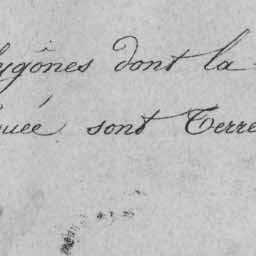 lygônes dont la
uée sont Terre